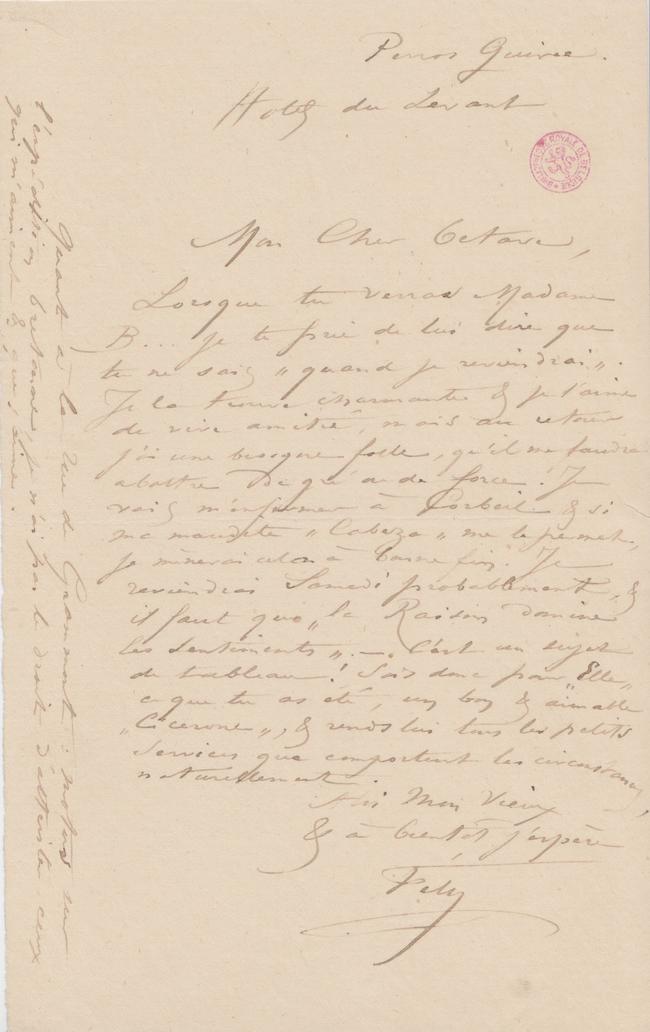 Perros Guirec.
Hotel du Levant
BIBLIOTHÈQUE ROYALE DE BELGIQUE
Mon Cher Octave,
Lorsque tu verras Madame
B... je te prie de lui dire que
tu ne sais „ quand je reviendrai „.
Je la trouve charmante & je l'aime
de vive amitié, mais au retour
j'ai une besogne folle, qu'il me faudra
abattre de gré ou de force! Je
vais m'enfermer à Corbeil & si
ma maudite „ Cabeza „ me le permet,
je mènerai cela à bonne fin. Je
reviendrai Samedi probablement, &
il faut que „ la Raison domine
les Sentiments „. — C'est un sujet
de tableau! Sois donc pour „Elle„
ce que tu as été, un bon & aimable
„Cicerone„, & rends lui tous les petits
services que comportent les circonstances,
naturellement.
Mon Vieux
& à bientôt j'espère
Fély
Quant à la rue de Grammont: motus sur
l'expédition bretonne, je n'ai pas le droit d'attrister ceux
qui m'aiment & que j'aime.